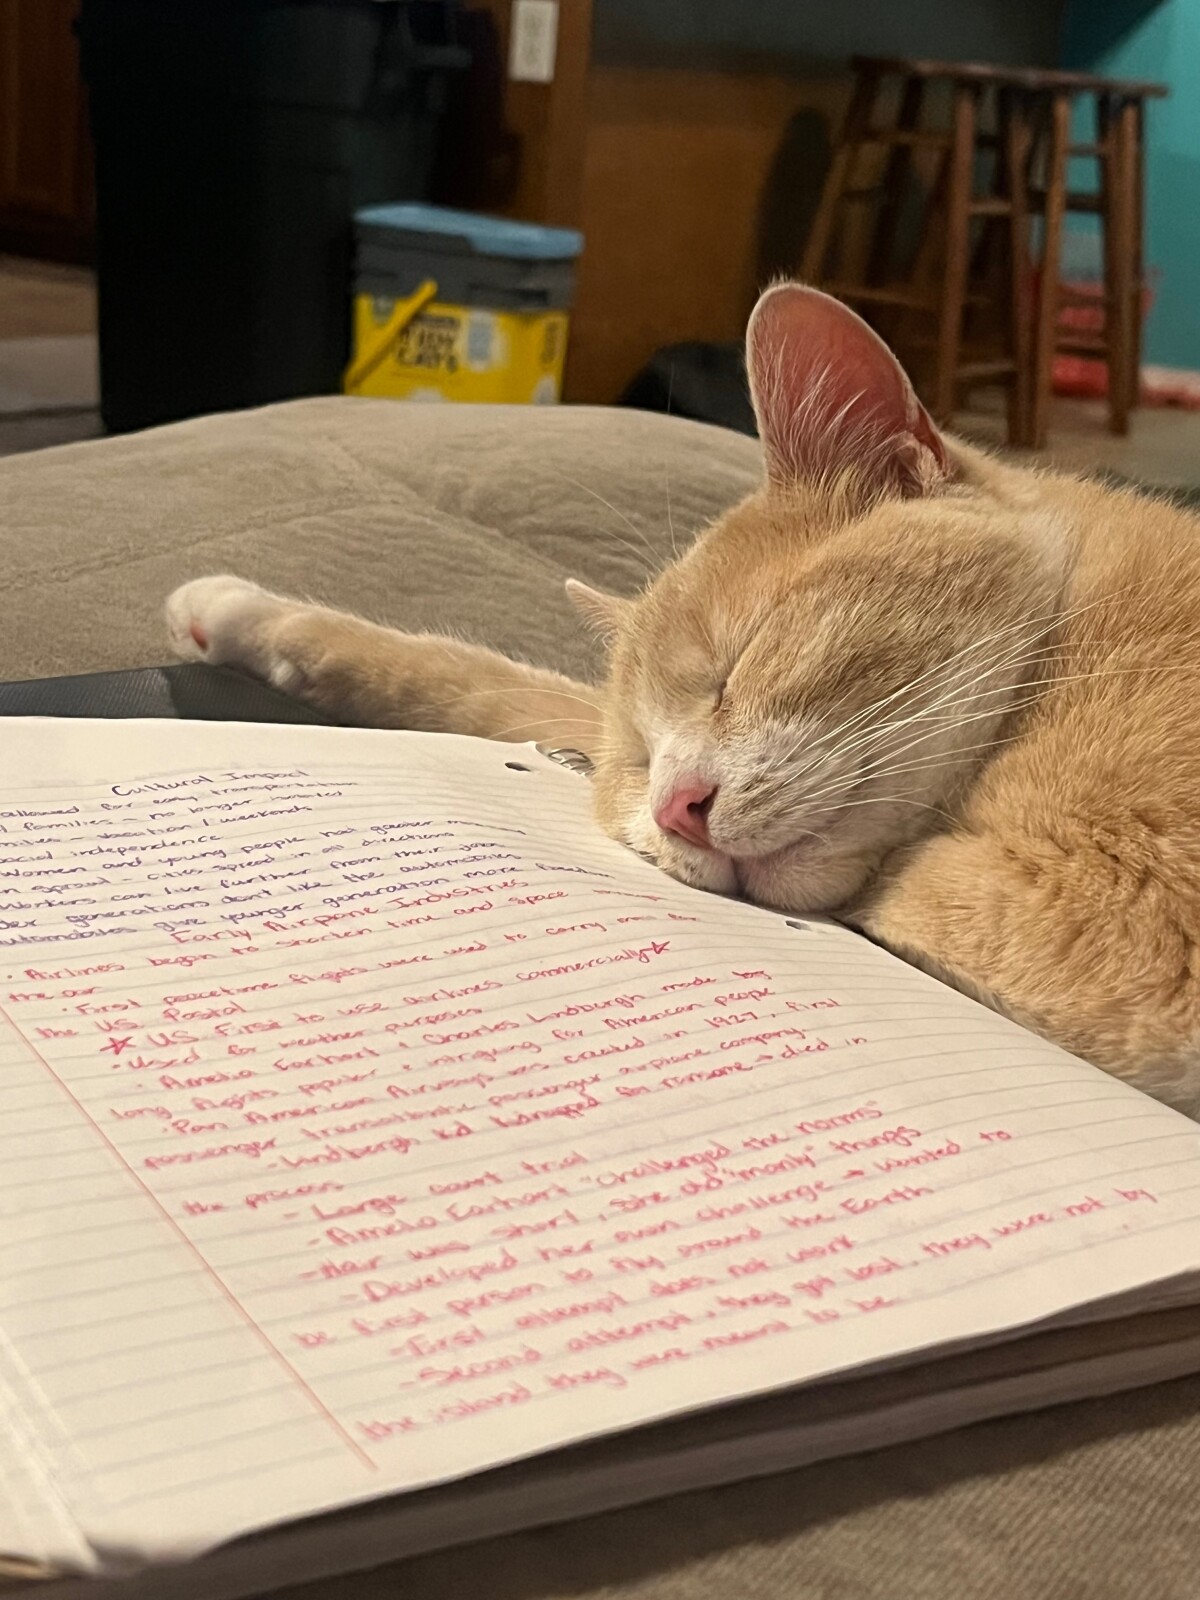 Cultural Impact
allowed for easy transportation
families - no longer isolated
milies - vacation / weekends
social independence
Women and young people had greater
n sprawl - cities spread in all directions
Workers can live further from their jobs
der generations don't like the automobiles
automobiles give younger generation more freedom
Early Airplane Industries
· Airlines began to shorten time and space
the air
· First peacetime flights were used to carry mail for
the US Postal
☆ US First to use airlines commercially ☆
· Used for weather purposes
· Amelia Earhart + Charles Lindburgh made
long flights popular + intriguing for American people
· Pan American Airways was created in 1927, first
passenger transatlantic passenger airplane company
- Lindbergh kid kidnapped for ransome → died in
the process
- Large court trial
- Amelia Earhart "Challenged the norms"
- Hair was short, She did "manly" things
- Developed her own challenge → Wanted to
be first person to fly around the Earth
- First attempt does not work
- Second attempt, they got lost, they were not by
the island they were meant to be
TIDY
CATS